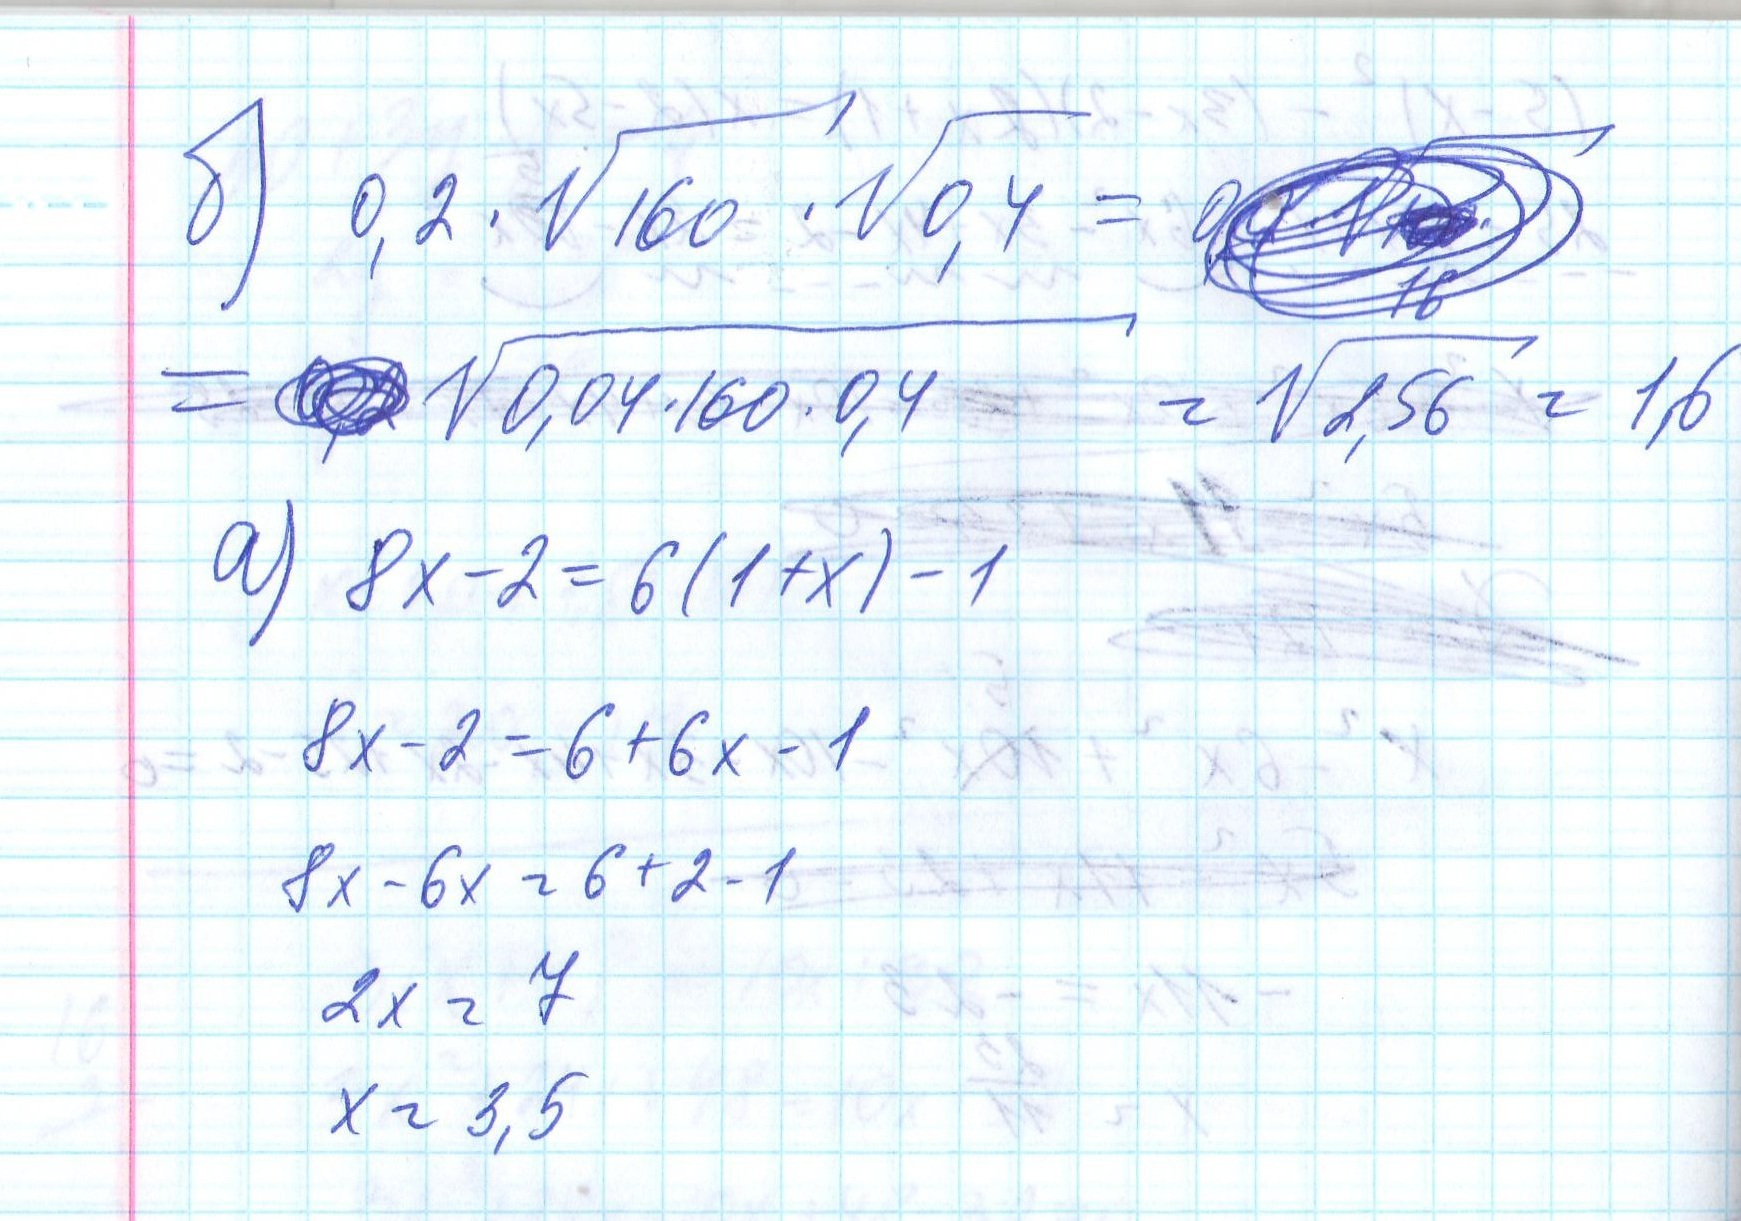 б) 0,2 · √160 · √0,4 =
= √0,04·160·0,4 = √2,56 = 1,6
а) 8x - 2 = 6(1+x) - 1
8x - 2 = 6 + 6x - 1
8x - 6x = 6 + 2 - 1
2x = 7
x = 3,5